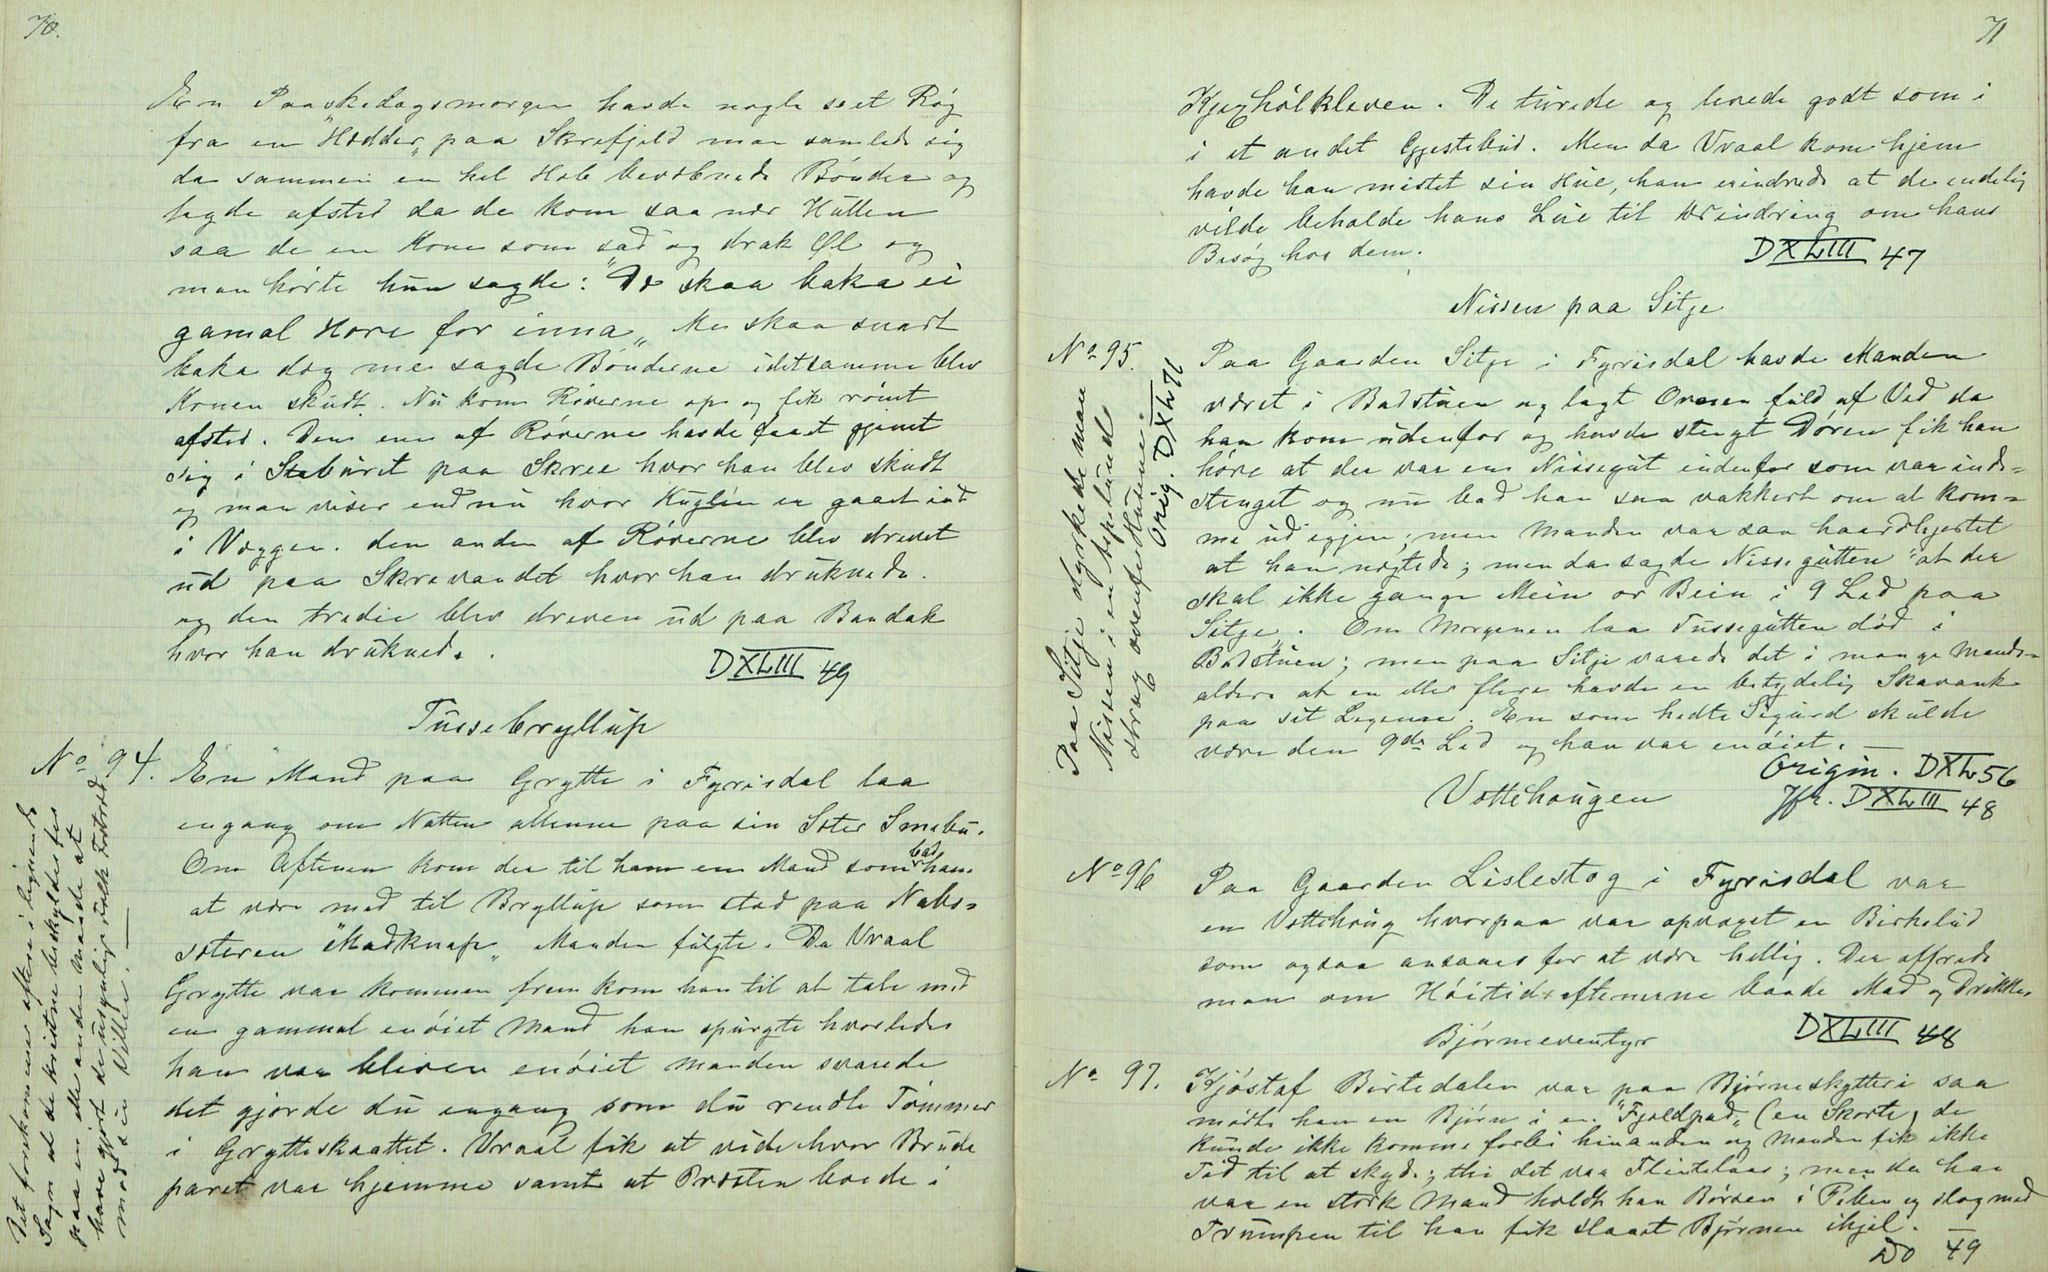 70.
En Paaskedagsmorgen havde nogle seet Røg
fra en "Hødder" paa Skrefjeld man samlede sig
da sammen en hel Hob bevæbnede Bønder og
lagde afsted da de kom saa nær Hütten
saa de en Kone som sad og drak Øl og
man hørte hun sagde: "De skaa baka ei
gamal Hore for inna" Me skaa snart
baka dog me sagde Bønderne idetsamme blev
Konen skudt. Nu kom Røverne op og fik rømt
afsted. Den ene af Røverne havde faaet gjemt
sig i Stabüret paa Skree hvor han blev skudt
og man viser endnu hvor Kuglen er gaaet ind
i Væggen. den anden af Røverne blev drevet
ud paa Skrevandet hvor han druknede.
og den tredie blev dreven ud paa Bandak
hvor han druknede.
DXLIII 49
Tussebryllup
No 94. En Mand paa Grytte i Fyrisdal laa
engang om Natten allenne paa sin Sæter Smebu.
Om Aftenen kom der til ham en Mand som bad ham
at være med til Bryllup som stod paa Nabo-
sæteren "Madknap" Manden fulgte. Da Vraal
Grytte var kommen frem kom han til at tale med
en gammal enøiet Mand han spurgte hvorledes
han var bleven enøiet manden svarede
det gjorde du engang som du rendte Tømmer
i Grytteskaattet. Vraal fik at vide hvor Brude
paret var hjemme samt at Præsten boede i
Det forekommer oftere i lignende
Sagn at de kristne beskyldes for
paa en eller anden Maade at
have gjort de usynlige Folk Fortræd
mod sin Villie. —
71
Kjexhølkleven. De turede og levede godt som i
i et andet Gjestebud. Men da Vraal kom hjem
havde han mistet sin Hue, han erindrede at de endelig
vilde beholde hans Lue til Erindring om hans
Besøg hos dem.
DXLIII 47
Nissen paa Sitje
No 95. Paa Gaarden Sitje i Fyrisdal havde Manden
været i Badstuen og lagt Ovnen fuld af Ved da
han kom udenfor og havde stengt Døren fik han
høre at der var en Nissegut indenfor som var inde-
stenget og nu bad han saa vakkert om at kom-
me ud igjen; men Manden var saa haardhjertet
at han nægtede; men da sagde Nissegutten "at der
skal ikke gange Mein or Bein i 9 Led paa
Sitje". Om Morgenen laa Tussegutten død i
Badstuen; men paa Sitje varede det i mange Mands-
aldere at en eller flere havde en betydelig Skavank
paa sit Legeme. En som hedte Sigurd skulde
være den 9de Led og han var enøiet. —
Origin. DXL 56
Jfr. DXLIII 48
Paa Sitje dyrkede man
Nissen i en Aspelund
strag ovenfor Husene:
Orig. DXL 71
Vettehougen
No 96 Paa Gaarden Lislestog i Fyrisdal var
en Vettehoug hvorpaa var opvoxet en Birkelud
som ogsaa ansaaes for at være hellig. Der offrede
man om Høitidsaftenerne baade Mad og Drikke.
DXLIII 48
Bjørneeventyr
No 97. Kjøstaf Birtedalen var paa Bjørneskytteri saa
mødte han en Bjørn i en "Fjeldpad" (en Skorte) de
kunde ikke komme forbi hinanden og Manden fik ikke
Tid til at skyde; thi det var Flintelaas; men da han
var en stærk Mand holdt han Børsen i Piben og slog med
Trumpen til han fik slaaet Bjørnen ihjel. —
Do 49